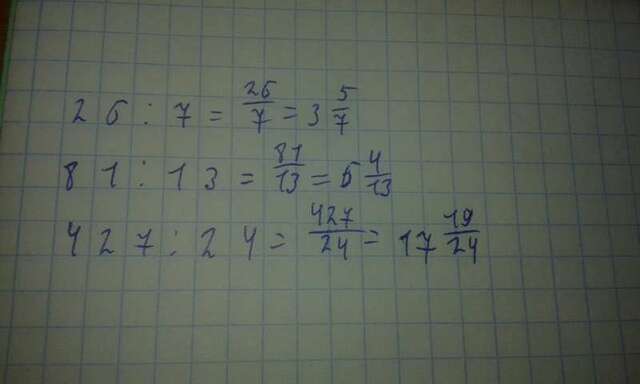 26 : 7 = 26/7 = 3 5/7
81 : 13 = 81/13 = 6 4/13
427 : 24 = 427/24 = 17 19/24